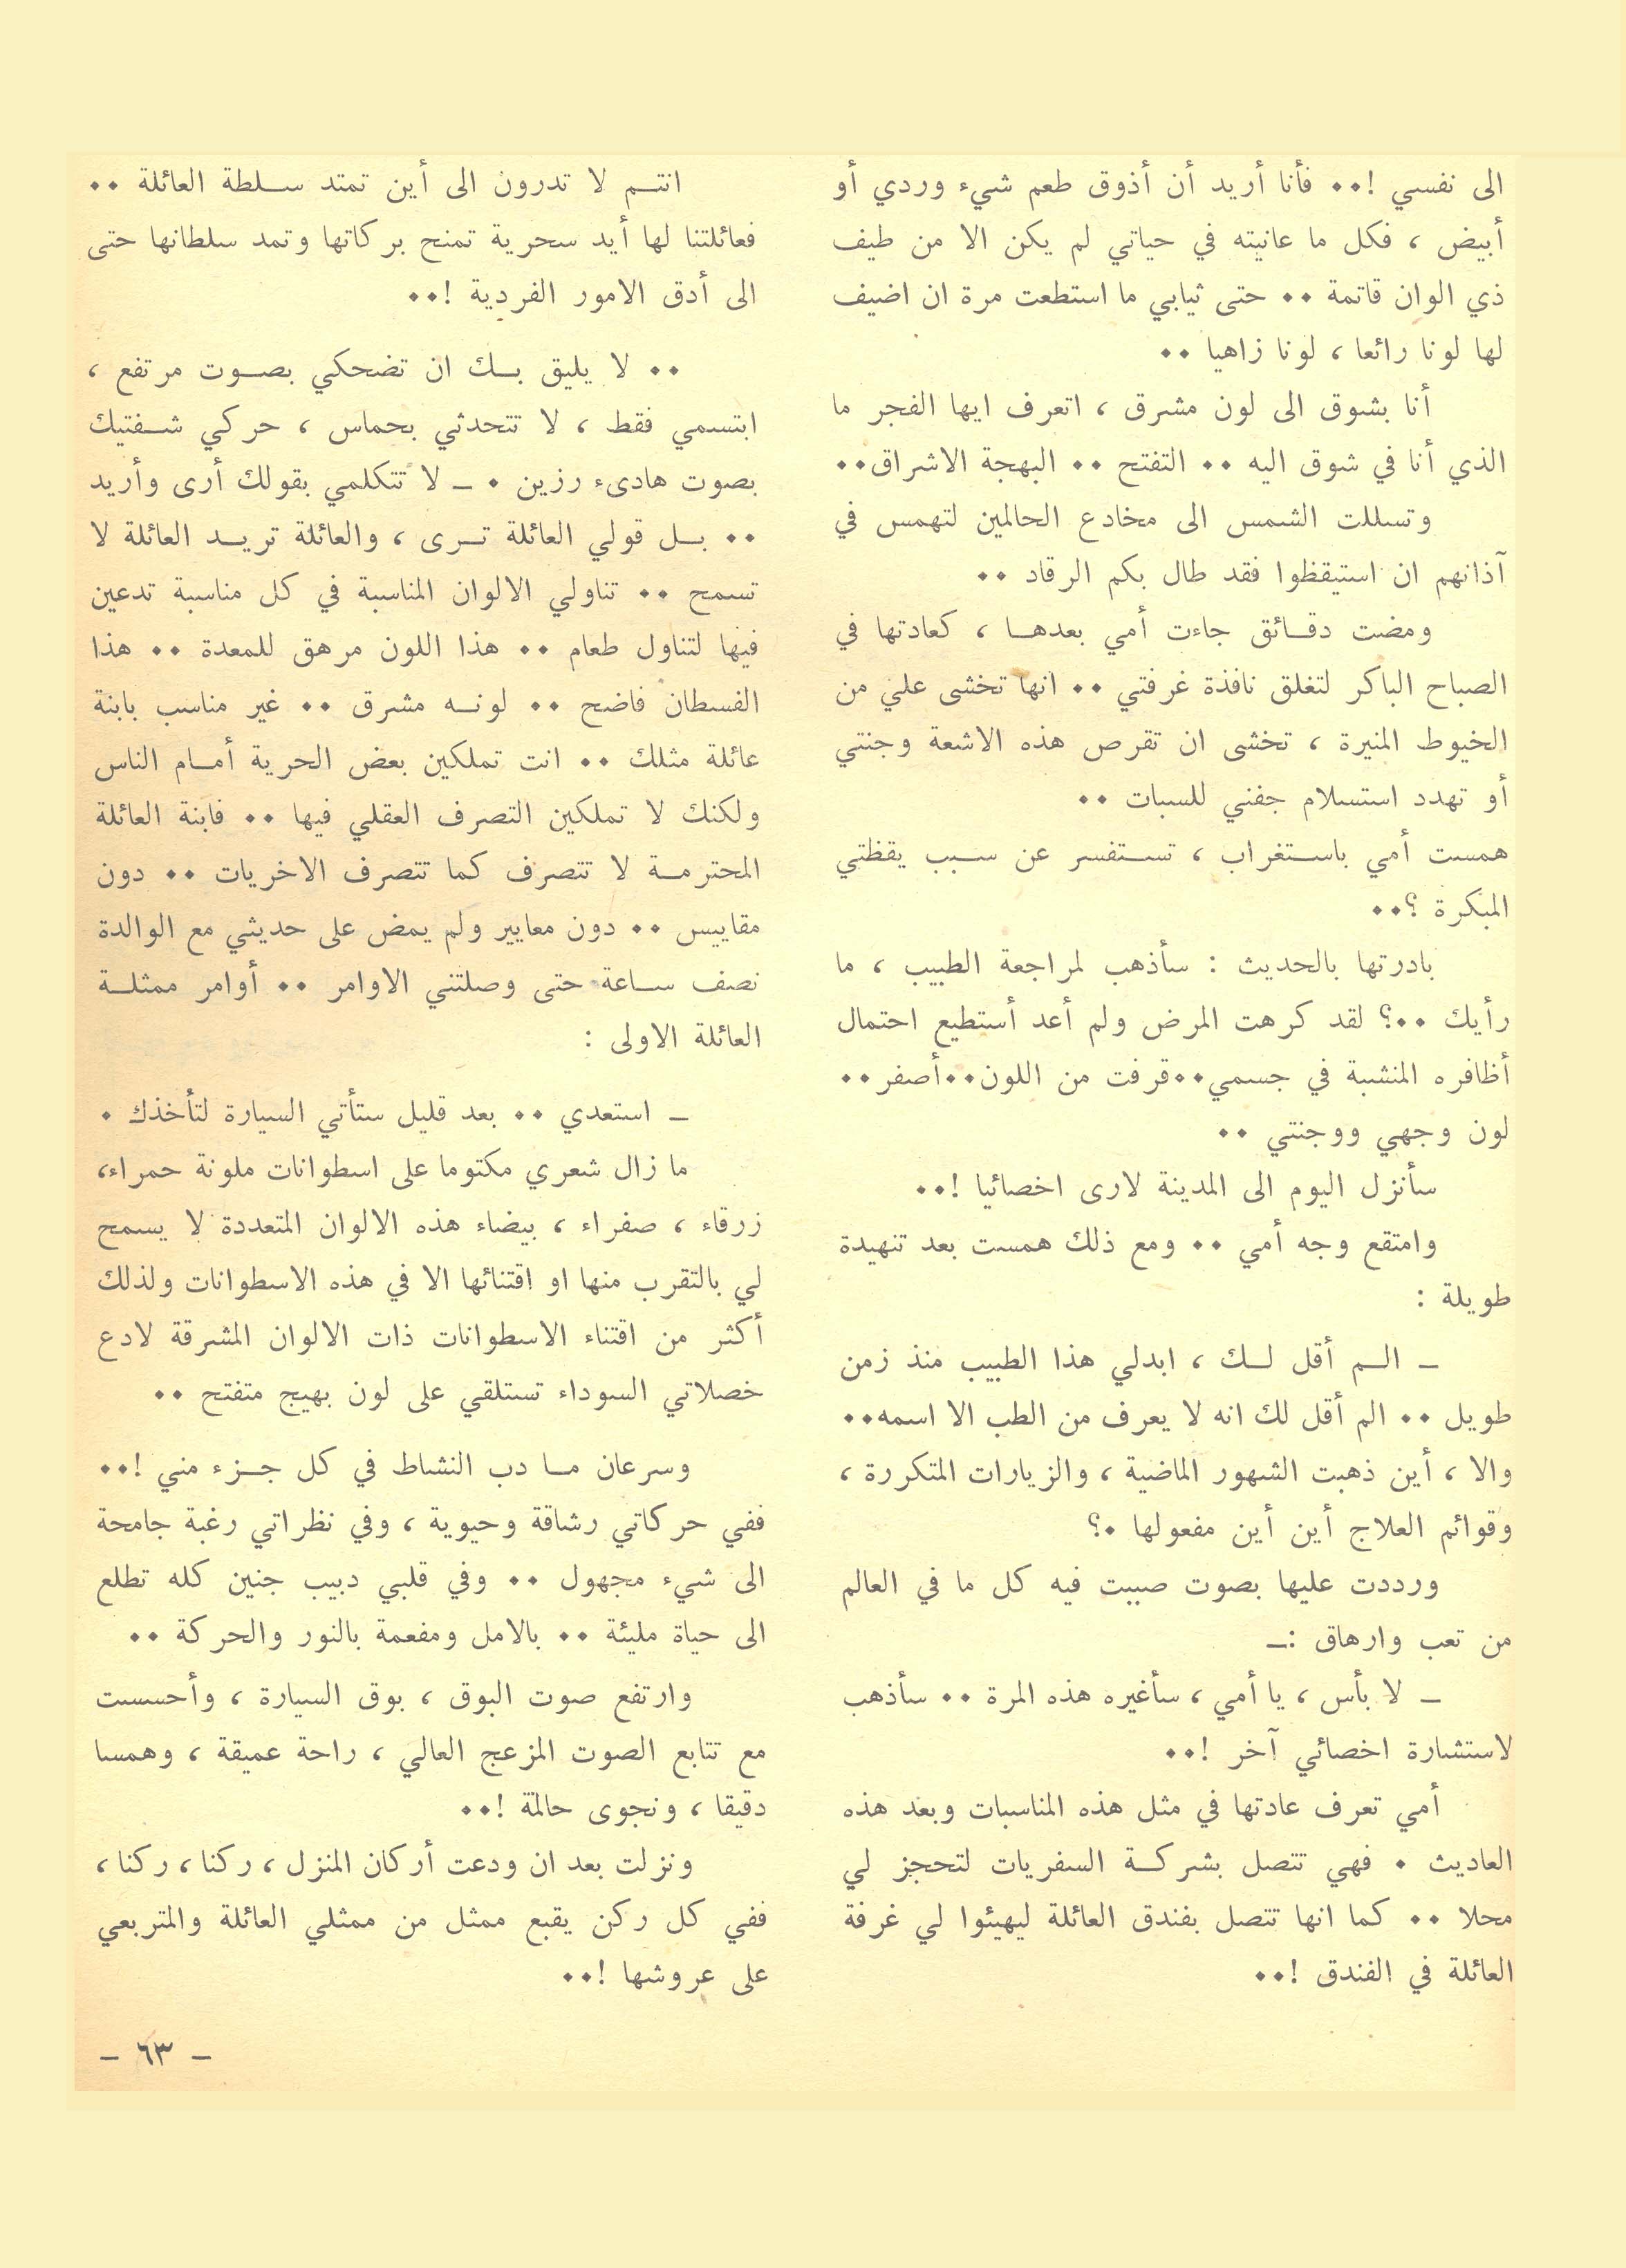 الى نفسي !.. فأنا أريد أن أذوق طعم شيء وردي أو
أبيض ، فكل ما عانيته في حياتي لم يكن الا من طيف
ذي الوان قاتمة .. حتى ثيابي ما استطعت مرة ان اضيف
لها لونا رائعا ، لونا زاهيا ..
أنا بشوق الى لون مشرق ، اتعرف ايها الفجر ما
الذي أنا في شوق اليه .. التفتح .. البهجة الاشراق..
وتسللت الشمس الى مخادع الحالمين لتهمس في
آذانهم ان استيقظوا فقد طال بكم الرقاد ..
ومضت دقائق جاءت أمي بعدها ، كعادتها في
الصباح الباكر لتغلق نافذة غرفتي .. انها تخشى علي من
الخيوط المنيرة ، تخشى ان تقرص هذه الاشعة وجنتي
أو تهدد استسلام جفني للسبات ..
همست أمي باستغراب ، تستفسر عن سبب يقظتي
المبكرة ؟..
بادرتها بالحديث : سأذهب لمراجعة الطبيب ، ما
رأيك ..؟ لقد كرهت المرض ولم أعد أستطيع احتمال
أظافره المنشبة في جسمي..قرفت من اللون..أصفر..
لون وجهي ووجنتي ..
سأنزل اليوم الى المدينة لارى اخصائيا !..
وامتقع وجه أمي .. ومع ذلك همست بعد تنهيدة
طويلة :
ـ الم أقل لك ، ابدلي هذا الطبيب منذ زمن
طويل .. الم أقل لك انه لا يعرف من الطب الا اسمه..
والا ، أين ذهبت الشهور الماضية ، والزيارات المتكررة ،
وقوائم العلاج أين أين مفعولها .؟
ورددت عليها بصوت صببت فيه كل ما في العالم
من تعب وارهاق :ـ
ـ لا بأس ، يا أمي ، سأغيره هذه المرة .. سأذهب
لاستشارة اخصائي آخر !..
أمي تعرف عادتها في مثل هذه المناسبات وبعد هذه
العاديث . فهي تتصل بشركة السفريات لتحجز لي
محلا .. كما انها تتصل بفندق العائلة ليهيئوا لي غرفة
العائلة في الفندق !..
انتم لا تدرون الى أين تمتد سلطة العائلة ..
فعائلتنا لها أيد سحرية تمنح بركاتها وتمد سلطانها حتى
الى أدق الامور الفردية !..
.. لا يليق بك ان تضحكي بصوت مرتفع ،
ابتسمي فقط ، لا تتحدثي بحماس ، حركي شفتيك
بصوت هادىء رزين . ـ لا تتكلمي بقولك أرى وأريد
.. بل قولي العائلة ترى ، والعائلة تريد العائلة لا
تسمح .. تناولي الالوان المناسبة في كل مناسبة تدعين
فيها لتناول طعام .. هذا اللون مرهق للمعدة .. هذا
الفسطان فاضح .. لونه مشرق .. غير مناسب بابنة
عائلة مثلك .. انت تملكين بعض الحرية أمام الناس
ولكنك لا تملكين التصرف العقلي فيها .. فابنة العائلة
المحترمة لا تتصرف كما تتصرف الاخريات .. دون
مقاييس .. دون معايير ولم يمض على حديثي مع الوالدة
نصف ساعة حتى وصلتني الاوامر .. أوامر ممثلة
العائلة الاولى :
ـ استعدي .. بعد قليل ستأتي السيارة لتأخذك .
ما زال شعري مكتوما على اسطوانات ملونة حمراء،
زرقاء ، صفراء ، بيضاء هذه الالوان المتعددة لا يسمح
لي بالتقرب منها او اقتنائها الا في هذه الاسطوانات ولذلك
أكثر من اقتناء الاسطوانات ذات الالوان المشرقة لادع
خصلاتي السوداء تستلقي على لون بهيج متفتح ..
وسرعان ما دب النشاط في كل جزء مني !..
ففي حركاتي رشاقة وحيوية ، وفي نظراتي رغبة جامحة
الى شيء مجهول .. وفي قلبي دبيب جنين كله تطلع
الى حياة مليئة .. بالامل ومفعمة بالنور والحركة ..
وارتفع صوت البوق ، بوق السيارة ، وأحسست
مع تتابع الصوت المزعج العالي ، راحة عميقة ، وهمسا
دقيقا ، ونجوى حالمة !..
ونزلت بعد ان ودعت أركان المنزل ، ركنا ، ركنا ،
ففي كل ركن يقبع ممثل من ممثلي العائلة والمتربعي
على عروشها !..
ـ ٦٣ ـ